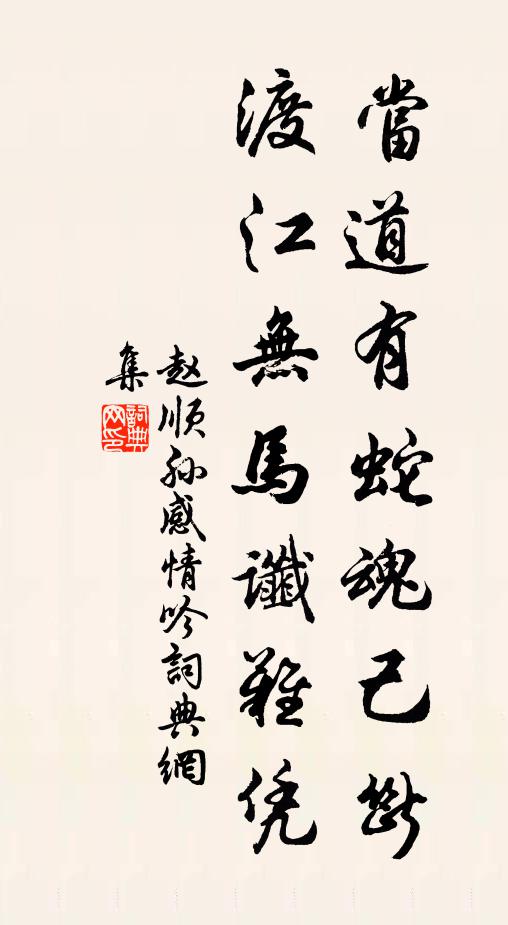 當道有蛇魂已斷
渡江無馬讖難凭
赵順孙感情吟詞典網
集
詞典
网印